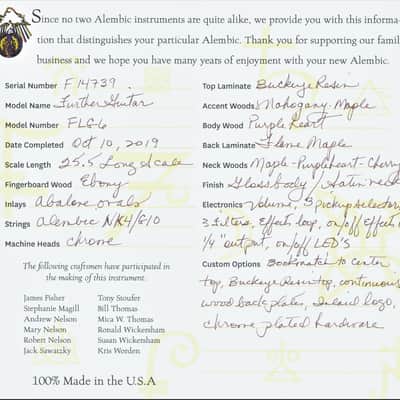 Since no two Alembic instruments are quite alike, we provide you with this informa-
tion that distinguishes your particular Alembic. Thank you for supporting our famil
business and we hope you have many years of enjoyment with your new Alembic.
Serial Number F14739
Model Name Further Guitar
Model Number FLG6
Date Completed Oct 10, 2019
Scale Length 25.5 Long Scale
Fingerboard Wood Ebony
Inlays Abalone ovals
Strings Alembic NX4/610
Machine Heads chrome
The following craftsmen have participated
in the making of this instrument.
James Fisher
Stephanie Magill
Andrew Nelson
Mary Nelson
Robert Nelson
Jack Sawatzky
Tony Stoufer
Bill Thomas
Mica W. Thomas
Ronald Wickersham
Susan Wickersham
Kris Worden
100% Made in the U.S.A
Top Laminate Buckeye Resin
Accent Woods Mahogany-Maple
Body Wood Purple heart
Back Laminate Flame Maple
Neck Woods Maple-Purpleheart-Cherry
Finish Gloss body/Satin neck
Electronics Volume, 5 pickup selector,
3 Filters, Effect loop, on/off Effect
1/4" output, on/off LED's
Custom Options Bookmatch to center
top, Buckeye Resin top, continuous
wood back plates, Inlaid logo,
chrome plated hardware